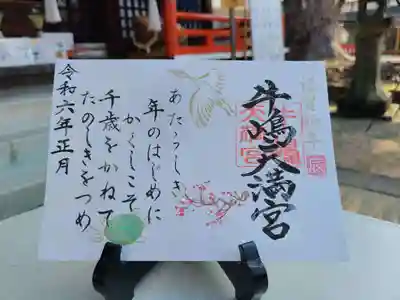 牛嶋天満宮
あたらしき
年のはじめに
かくしこそ
千歳をかねて
たのしきをつめ
令和六年正月
辰